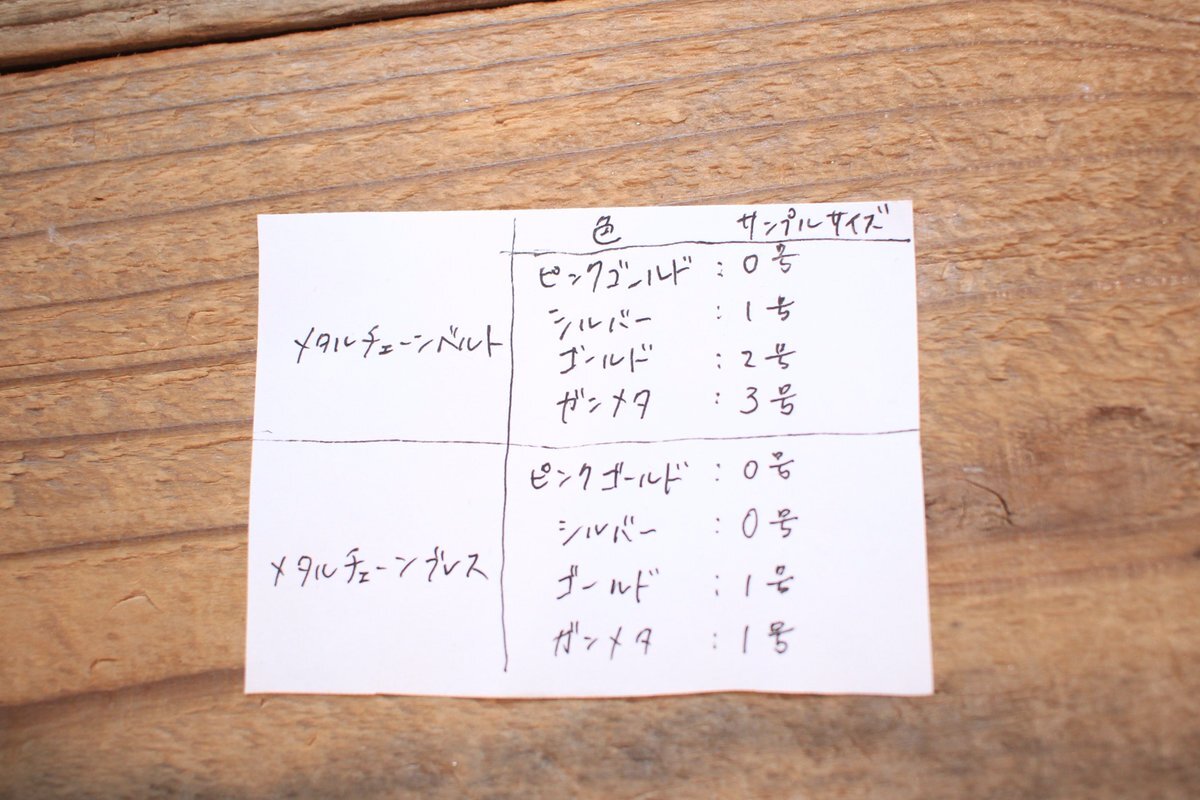 色 サンプルサイズ
メタルチェーンベルト
ピンクゴールド : 0号
シルバー : 1号
ゴールド : 2号
ガンメタ : 3号
メタルチェーンブレス
ピンクゴールド : 0号
シルバー : 0号
ゴールド : 1号
ガンメタ : 1号